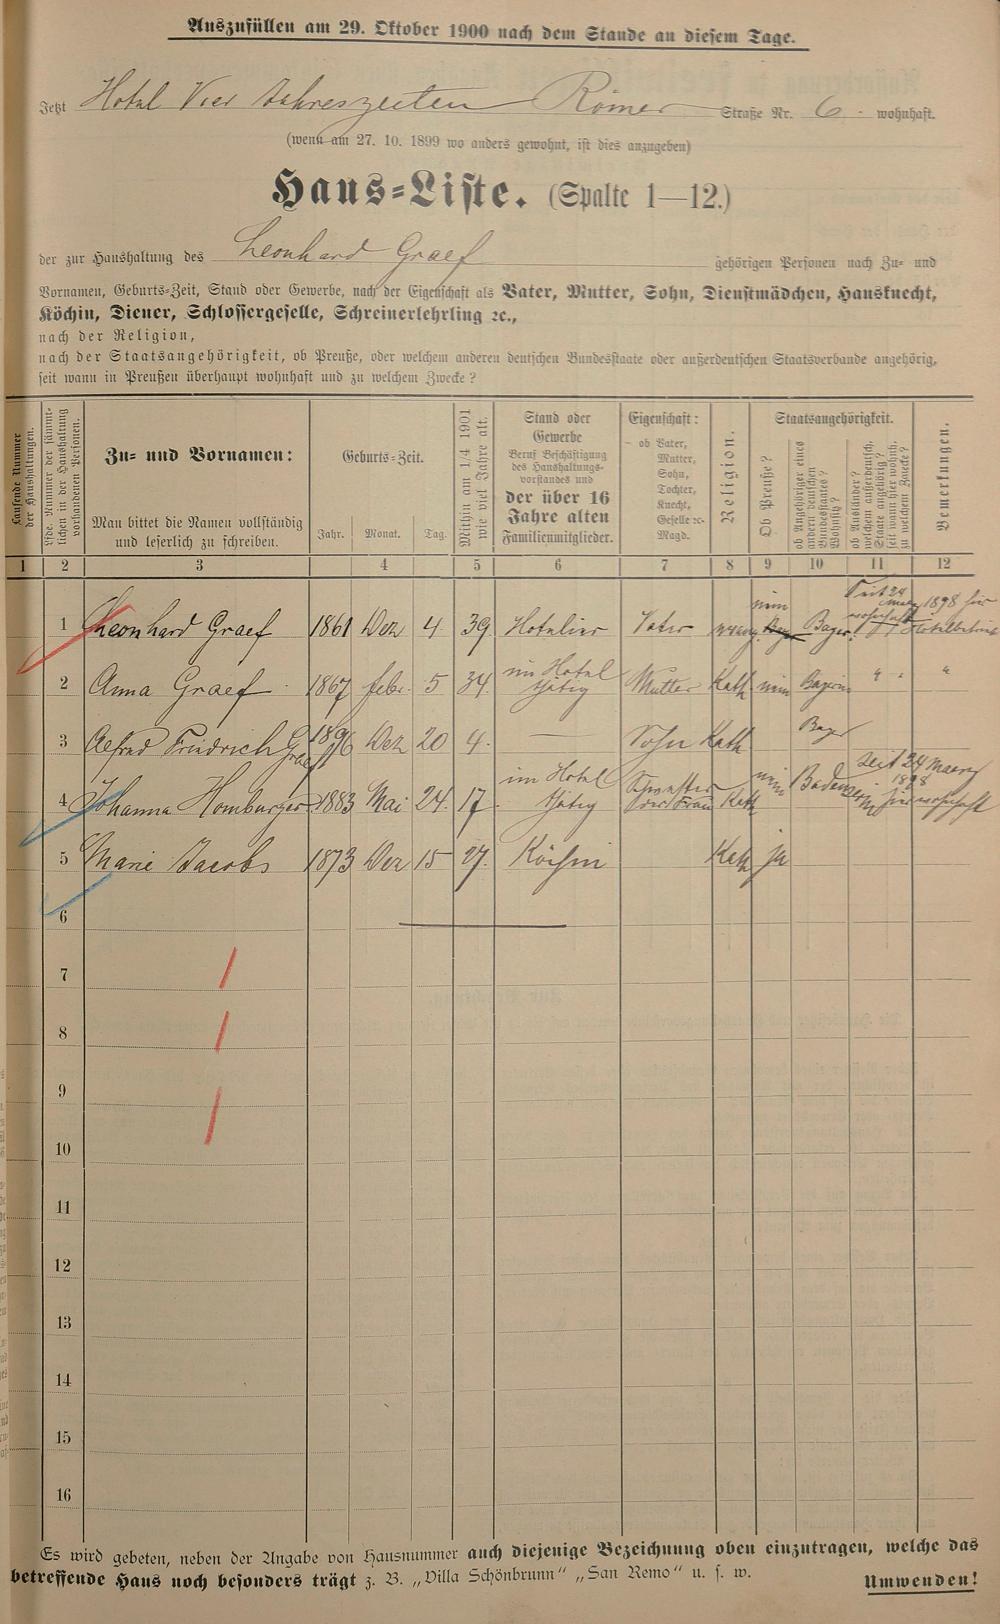 Auszufüllen am 29. Oktober 1900 nach dem Stande an diesem Tage.
Jetzt Hotel Vier Jahreszeiten Römer Straße Nr. 6 wohnhaft.
(wenn am 27. 10. 1899 wo anders gewohnt, ist dies anzugeben)
Haus-Liste. (Spalte 1—12.)
der zur Haushaltung des Leonhard Graef gehörigen Personen nach Zu- und
Vornamen, Geburts-Zeit, Stand oder Gewerbe, nach der Eigenschaft als Vater, Mutter, Sohn, Dienstmädchen, Hausknecht,
Köchin, Diener, Schlossergeselle, Schreinerlehrling ꝛc.,
nach der Religion,
nach der Staatsangehörigkeit, ob Preuße, oder welchem anderen deutschen Bundesstaate oder außerdeutschen Staatsverbande angehörig,
seit wann in Preußen überhaupt wohnhaft und zu welchem Zwecke?
Laufende Nummer
der Haushaltungen.
Lfde. Nummer der sämmt-
lichen in der Haushaltung
vorhandenen Personen.
Zu- und Vornamen:
Man bittet die Namen vollständig
und leserlich zu schreiben.
Geburts-Zeit.
Jahr. Monat. Tag.
Mithin am 1/4 1901
wie viel Jahre alt.
Stand oder
Gewerbe
Beruf Beschäftigung
des Haushaltungs-
vorstandes und
der über 16
Jahre alten
Familienmitglieder.
Eigenschaft:
— ob Vater,
Mutter,
Sohn,
Tochter,
Knecht,
Geselle ꝛc-
Magd.
Religion.
Staatsangehörigkeit.
Ob Preuße?
ob Angehöriger eines
andern deutschen
Bundesstaates?
Wohnsitz?
ob Ausländer?
welchem außerdeutsch.
Staate angehörig?
seit wann hier wohnh.
zu welchem Zwecke?
Bemerkungen.
1 2 3 4 5 6 7 8 9 10 11 12
1 Leonhard Graef 1861 Dez 4 39 Hotelier Vater evang. nein Bayer Seit 24 Maerz 1898 hier wohnhaft Hotelbetrieb
2 Anna Graef 1867 febr. 5 34 im Hotel tätig Mutter Kath nein Bayerin " " "
3 Alfred Friedrich Graef 1896 Dez 20 4 — Sohn Kath Bayer
4 Johanna Homburger 1883 Mai 24. 17 im Hotel tätig Schwester der Frau Kath nein Badenserin seit 24 Maerz 1898 hier wohnhaft
5 Marie Jacobs 1873 Dez 15 27. Köchin Kath ja
6
7
8
9
10
11
12
13
14
15
16
Es wird gebeten, neben der Angabe von Hausnummer auch diejenige Bezeichnung oben einzutragen, welche das
betreffende Haus noch besonders trägt z. B. „Villa Schönbrunn" „San Remo" u. s. w.
Umwenden!